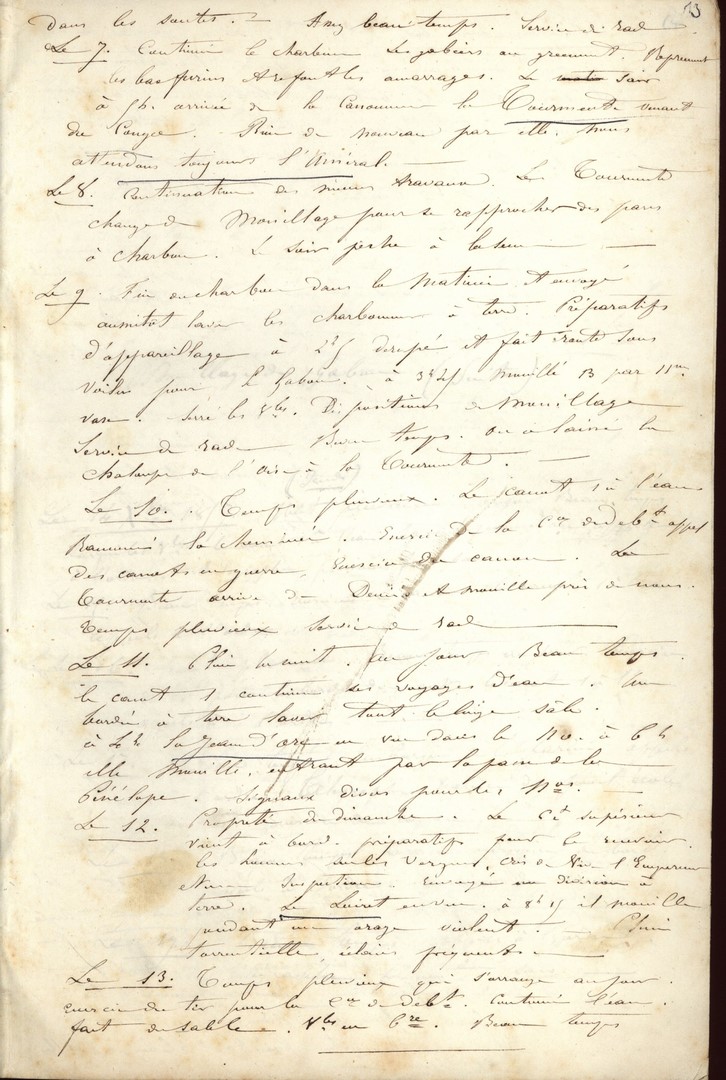 dans les soutes. - Assez beau temps. Service de rade
13
Le 7. Continué le charbon. Les gabiers au gréement. Reprennent
les bas haubans et refont les amarrages. Le soir
à 5h. arrivée de la Canonnière la Tourmente venant
du Congo. Rien de nouveau par elle. nous
attendons toujours l'Amiral. —
Le 8. Continuation des mêmes travaux. La Tourmente
change de mouillage pour se rapprocher des parcs
à charbon. Le soir pêche à la senne —
Le 9. Fin du charbon dans la matinée. Et envoyé
aussitôt laver les charbonniers à terre. Préparatifs
d'appareillage à 2h5 dérapé et fait route sous
voiles pour le Gabon. à 3h45 mouillé B par 11m
vase. Serré les Vles. Dispositions de Mouillage
Service de rade. Beau temps. On a laissé la
chaloupe de l'Oise à la Tourmente. —
Le 10. Temps pluvieux. Le canot 1 à l'eau
Ramoné la cheminée. Exercice de la Cie de débt appel
des canots en guerre, Exercice du canon. La
Tourmente arrive de et mouille près de nous.
Temps pluvieux Service de rade —
Le 11. Pluie la nuit. au jour Beau temps.
le canot 1 continue ses voyages d'eau. Un
bordée à terre laver tout le linge sale.
à 4h la Jeanne d'arc en vue dans le NO. à 6h
elle mouille, entrant par la passe de la
Pénélope. Signaux divers pour les Nos.
Le 12. Propreté du dimanche. Le Ct supérieur
vient à bord. préparatifs pour le recevoir.
les hommes sur les vergues, cris de Vive l'Empereur
Inspection. Envoyé une division à
terre. Le Loiret en vue. à 8h15 il mouille
pendant un orage violent. — Pluie
torrentielle, éclairs fréquents —
Le 13. Temps pluvieux qui s'arrange au jour.
exercice de tir pour la Cie de Debt. Continué l'eau.
fait du sable. Vles en bre. Beau temps